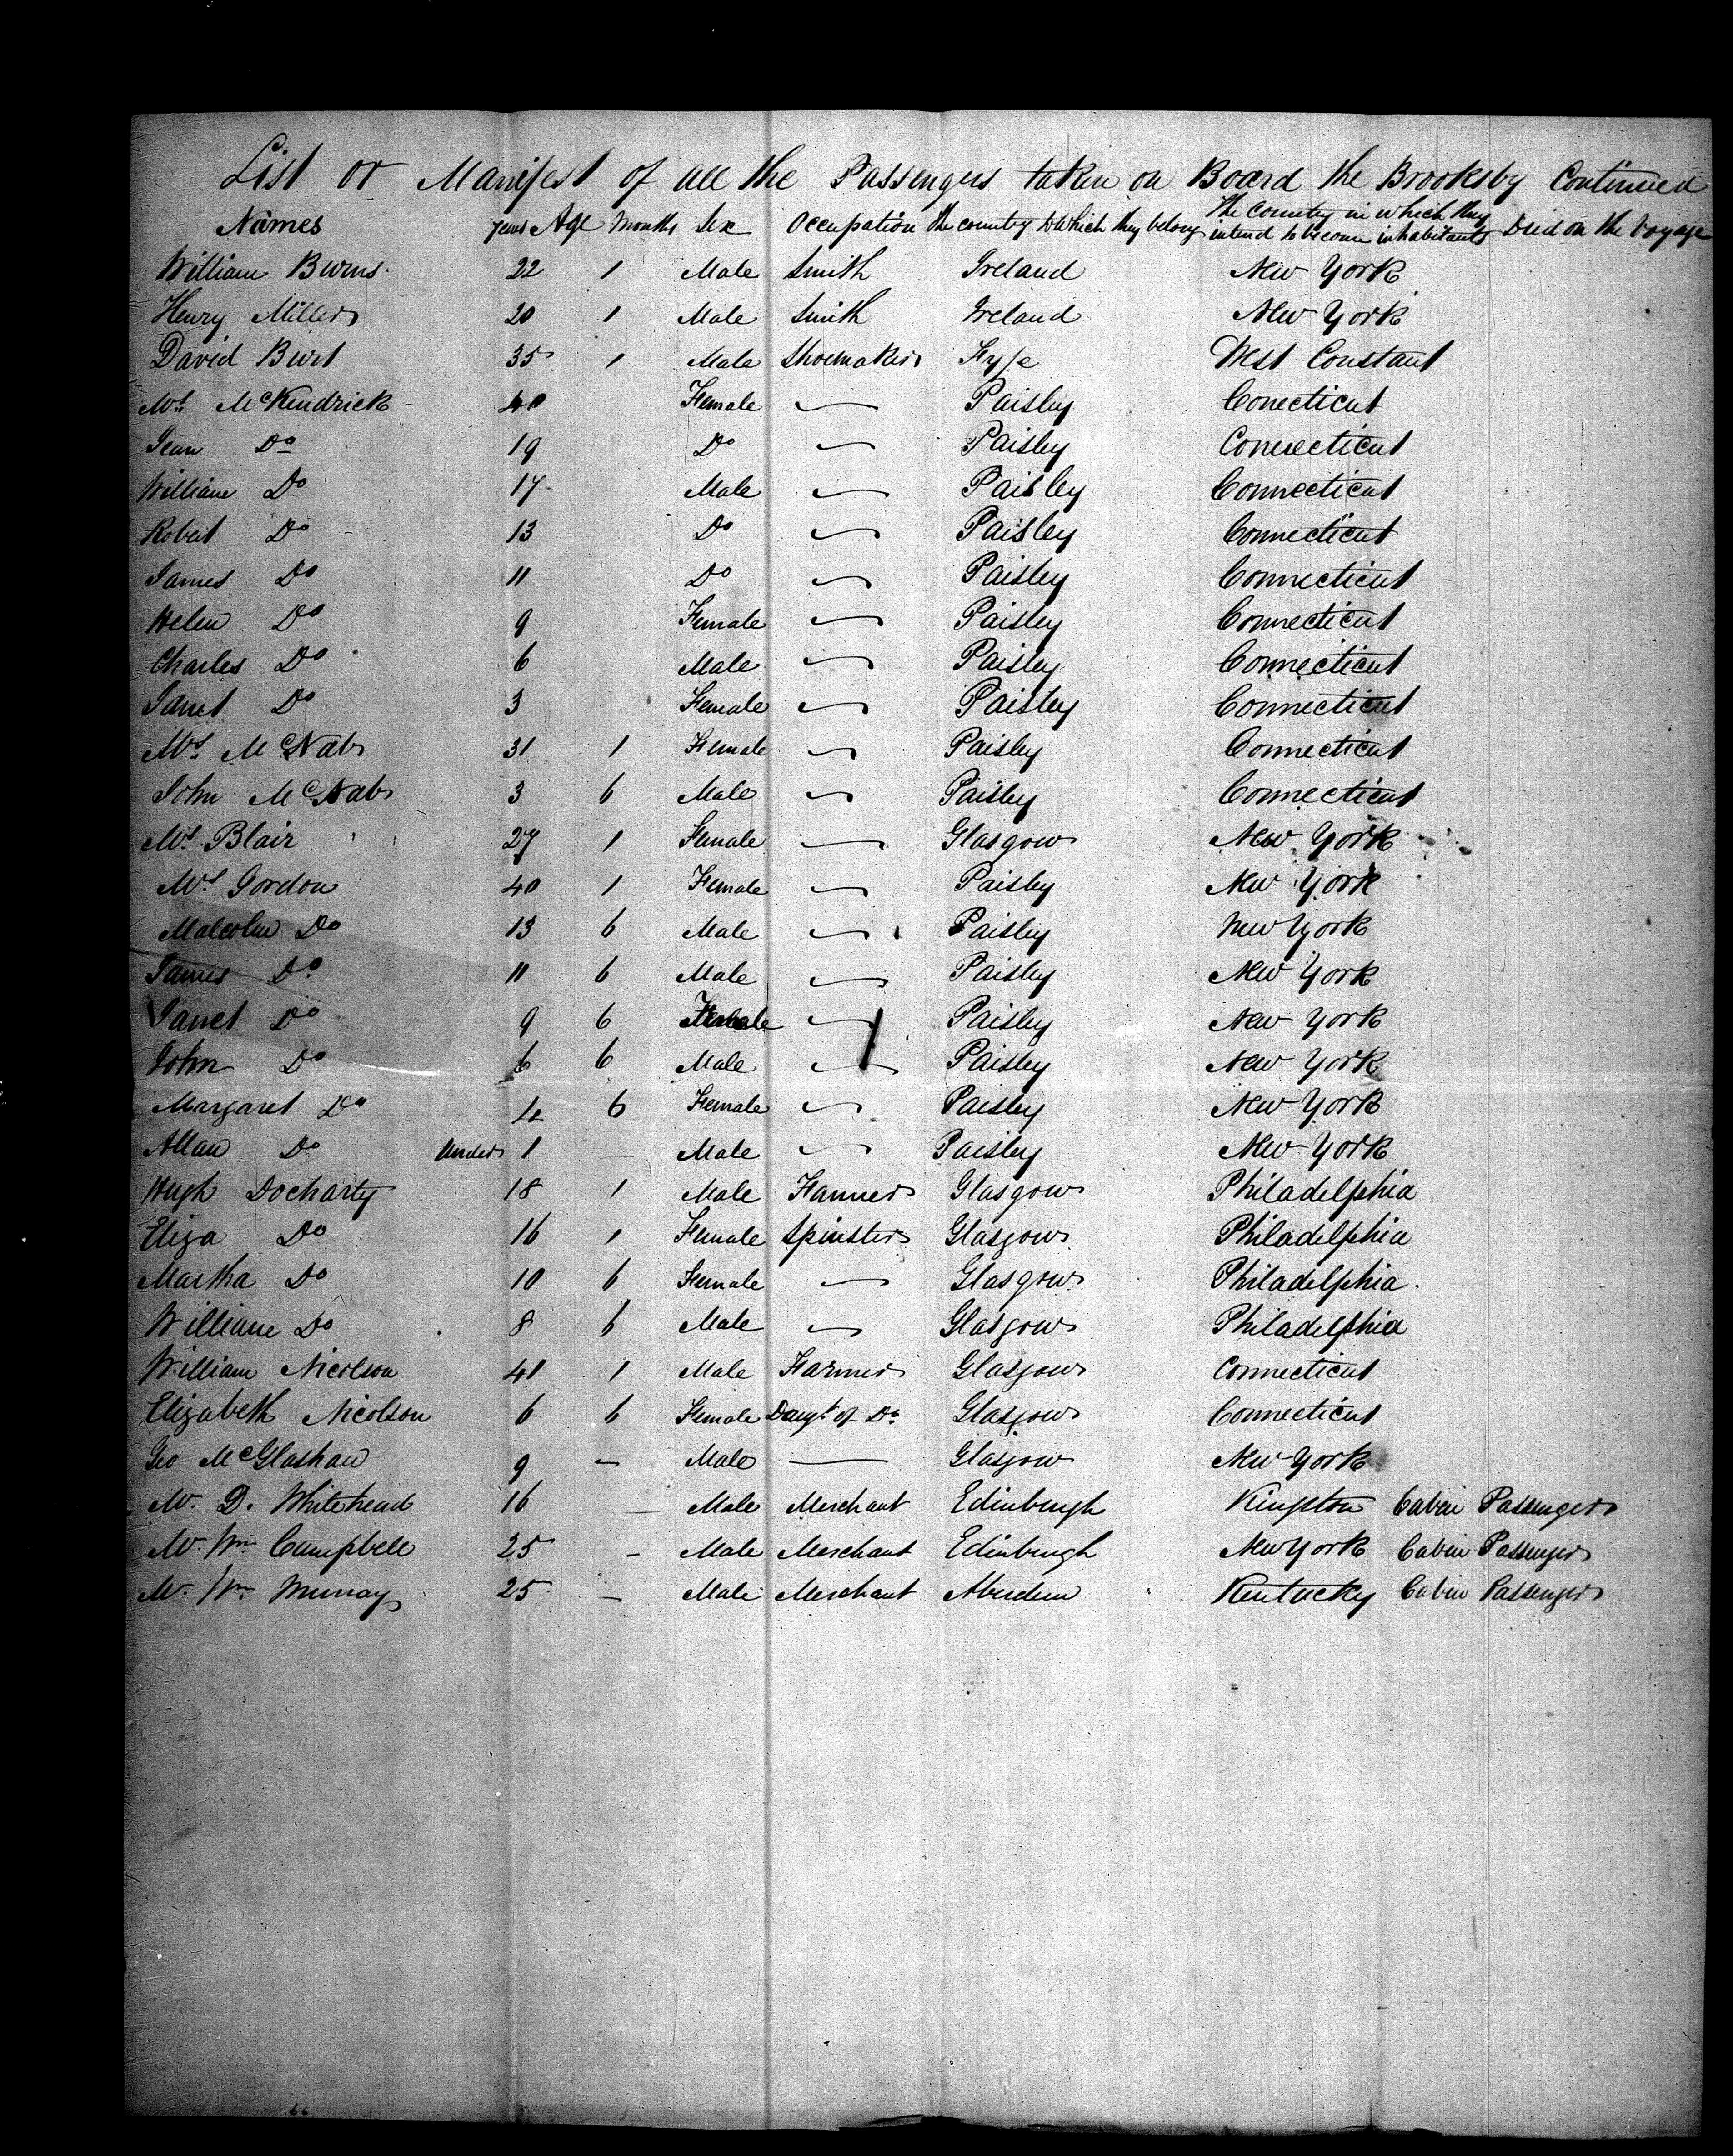 List or Manifest of all the Passengers taken on Board the Brooksby Continued
Names years Age Months Sex Occupation The country to which they belong The Country in which they intend to become inhabitants Died on the Voyage
William Burns 22 1 Male Smith Ireland New York
Henry Miller 20 1 Male Smith Ireland New York
David Burt 35 1 Male Shoemaker Fyfe West Constant
Mrs. McKendrick 40 Female — Paisley Conecticut
Jean Do 19 Do — Paisley Connecticut
William Do 17 Male — Paisley Connecticut
Robert Do 13 Do — Paisley Connecticut
James Do 11 Do — Paisley Connecticut
Helen Do 9 Female — Paisley Connecticut
Charles Do 6 Male — Paisley Connecticut
Janet Do 3 Female — Paisley Connecticut
Mrs. McNab 31 1 Female — Paisley Connecticut
John McNab 3 6 Male — Paisley Connecticut
Mrs. Blair 27 1 Female — Glasgow New York
Mrs. Gordon 40 1 Female — Paisley New York
Malcolm Do 13 6 Male — Paisley New York
James Do 11 6 Male — Paisley New York
Janet Do 9 6 Female — Paisley New York
John Do 6 6 Male — Paisley New York
Margaret Do 4 6 Female — Paisley New York
Allan Do Under 1 — Male — Paisley New York
Hugh Docharty 18 1 Male Farmer Glasgow Philadelphia
Eliza Do 16 1 Female Spinster Glasgow Philadelphia
Martha Do 10 6 Female — Glasgow Philadelphia.
William Do 8 6 Male — Glasgow Philadelphia
William Nicolson 41 1 Male Farmer Glasgow Connecticut
Elizabeth Nicolson 6 6 Female Daugt. of Do. Glasgow Connecticut
Geo McGlashan 9 — Male — Glasgow New York
Mr. D. Whitehead 16 — Male Merchant Edinburgh Kingston Cabin Passenger
Mr. Wm Campbell 25 — Male Merchant Edinburgh New York Cabin Passenger
Mr. Wm Murray 25 — Male Merchant Aberdeen Kentucky Cabin Passenger